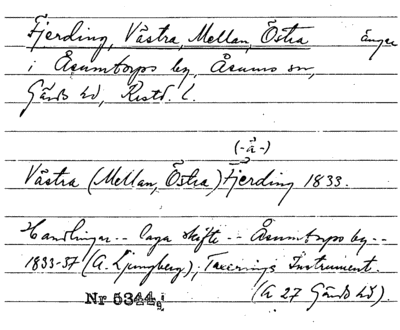 Fjerding, Västra, Mellan, Östra änger
i Åsumtorps by, Åsums sn,
Gärds hd, Kristd. l.
(-å-)
Västra (Mellan, Östra) Fjerding 1833.
Handlingar -- laga skifte -- Åsumtorps by --
1833-37 (A. Ljungberg), Taxerings Instrument.
Nr 5344, (A 27 Gärds hd).